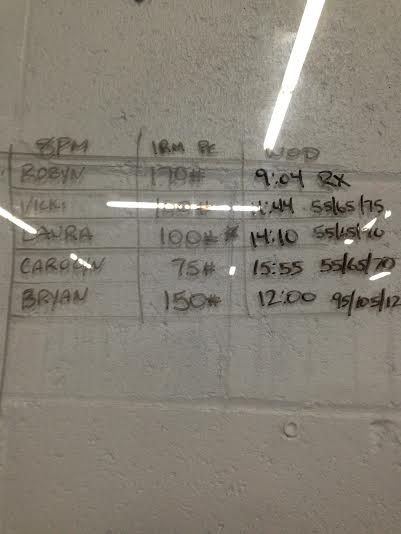 8PM 1RM PC WOD
ROBYN 170# 9:04 RX
VICKI 55/65/75
LAURA 100# 14:10
CAROLYN 75# 15:55 55/65/70
BRYAN 150# 12:00 95/105/12